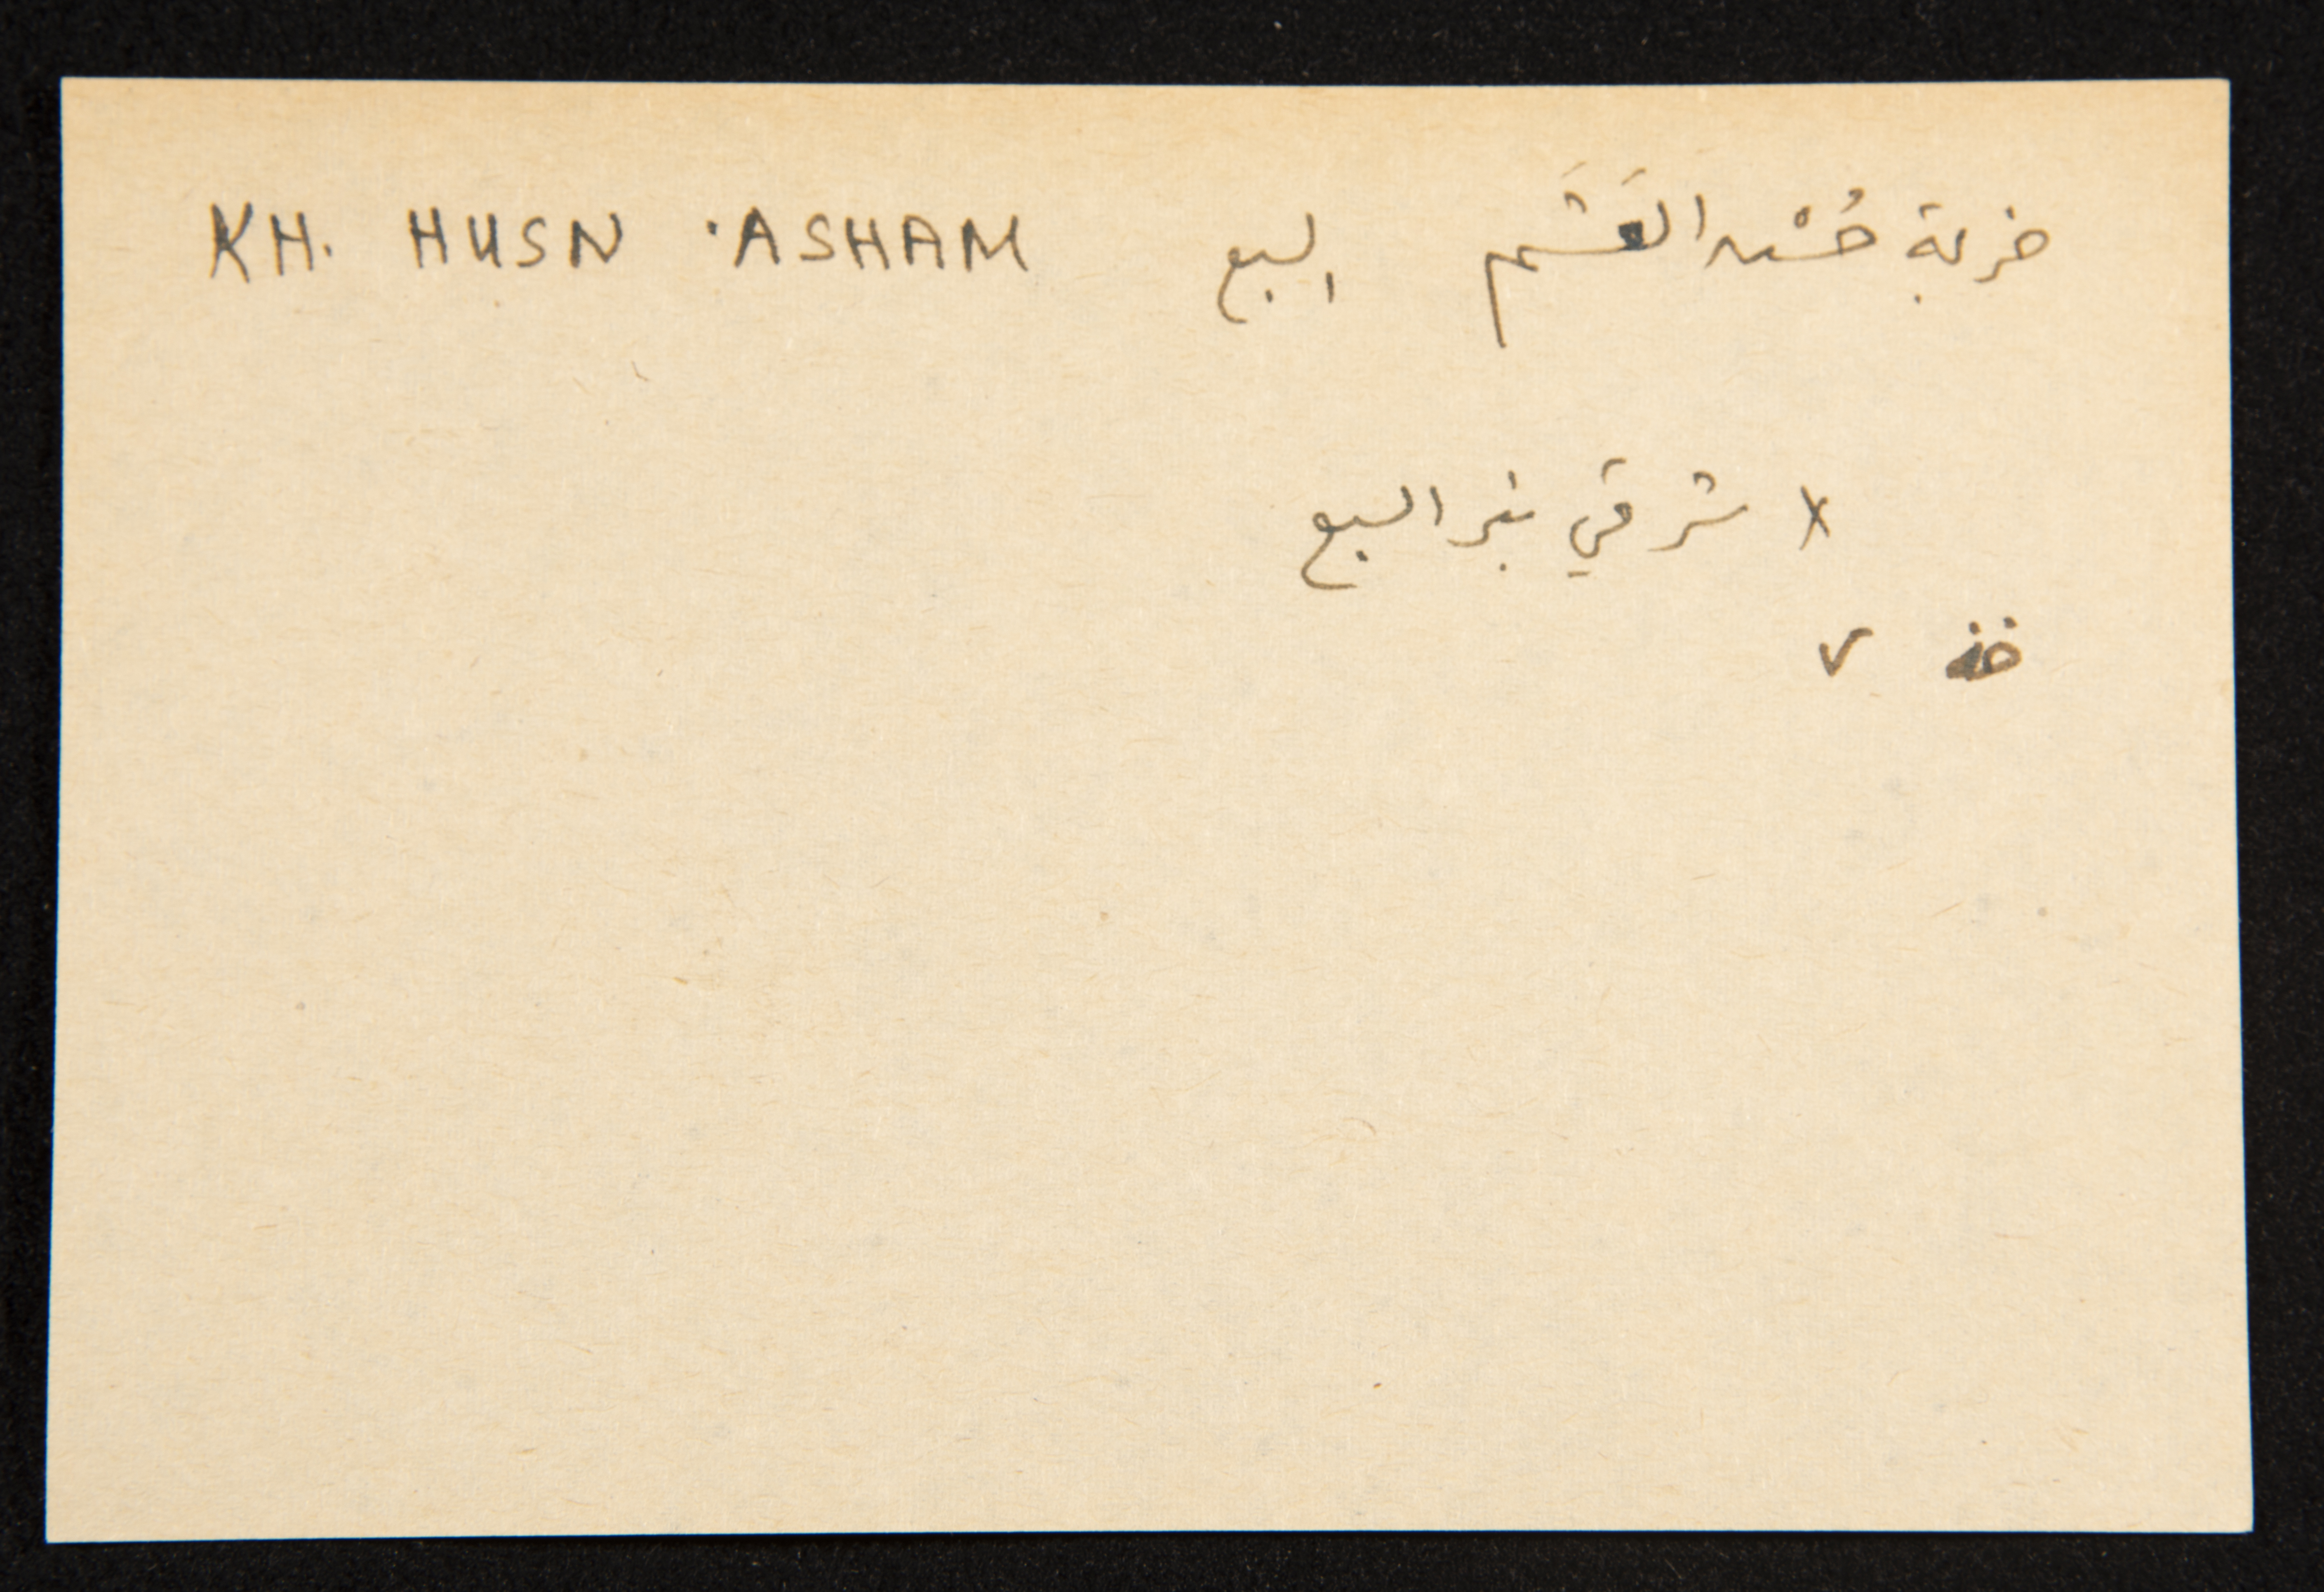 KH. HUSN 'ASHAM السبع خربة حُسْن العَشَم
x شرقي بئر السبع
٧